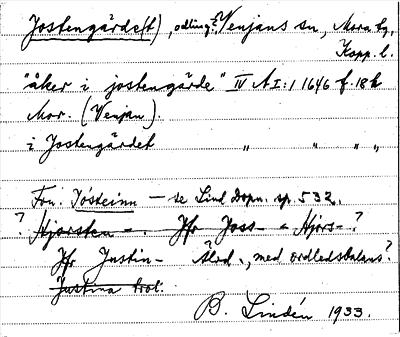 Jostengärde(t), odling?, Venjans sn, Mora tg,
Kopp. l.
"åker i jostengärde" IV A I:1 1646 f. 18
Mor. (Venjan).
i Jostengärdet " " "
Fvn. Iósteinn – se Lind Dopn. sp. 532.
? Hjorsten - . Jfr Joss- - Hjors- ?
Jfr Justin- Älvd., med ordledsbalans?
Justina trol.
B. Lindén 1933.